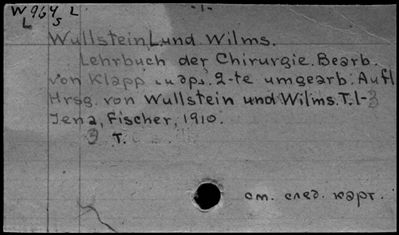 W 964 L - 1 -
L S
Wullstein L. und Wilms.
Lehrbuch der Chirurgie. Bearb.
von Klapp и др. 2-te umgearb. Aufl.
Hrsg. von Wullstein und Wilms. T. 1-3
Jena, Fischer, 1910.
3 T.
см. след. карт.